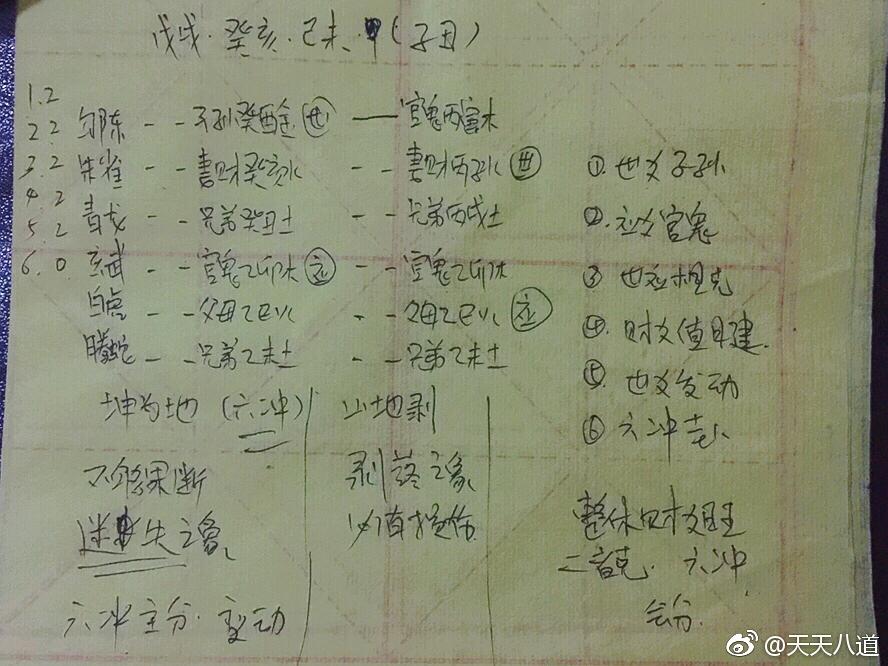 戊戌·癸亥·己未·甲(子丑)
1.2
2.2 勾陈 - - 子孙癸酉金(世) — 官鬼丙寅木
3.2 朱雀 - - 妻财癸亥水 - - 妻财丙子水(世)
4.2 青龙 - - 兄弟癸丑土 - - 兄弟丙戌土
5.2
6.0 玄武 - - 官鬼乙卯木(应) - - 官鬼乙卯木
白虎 - - 父母乙巳火 - - 父母乙巳火(应)
腾蛇 - - 兄弟乙未土 - - 兄弟乙未土
坤为地(六冲)
不够果断
迷失之象
六冲主分·变动
山地剥
剥落之象
必有损伤
①世爻子孙
②应爻官鬼
③世应相克
④财爻值日建
⑤世爻发动
⑥六冲卦
整体财爻旺
六冲
会分
@天天八道